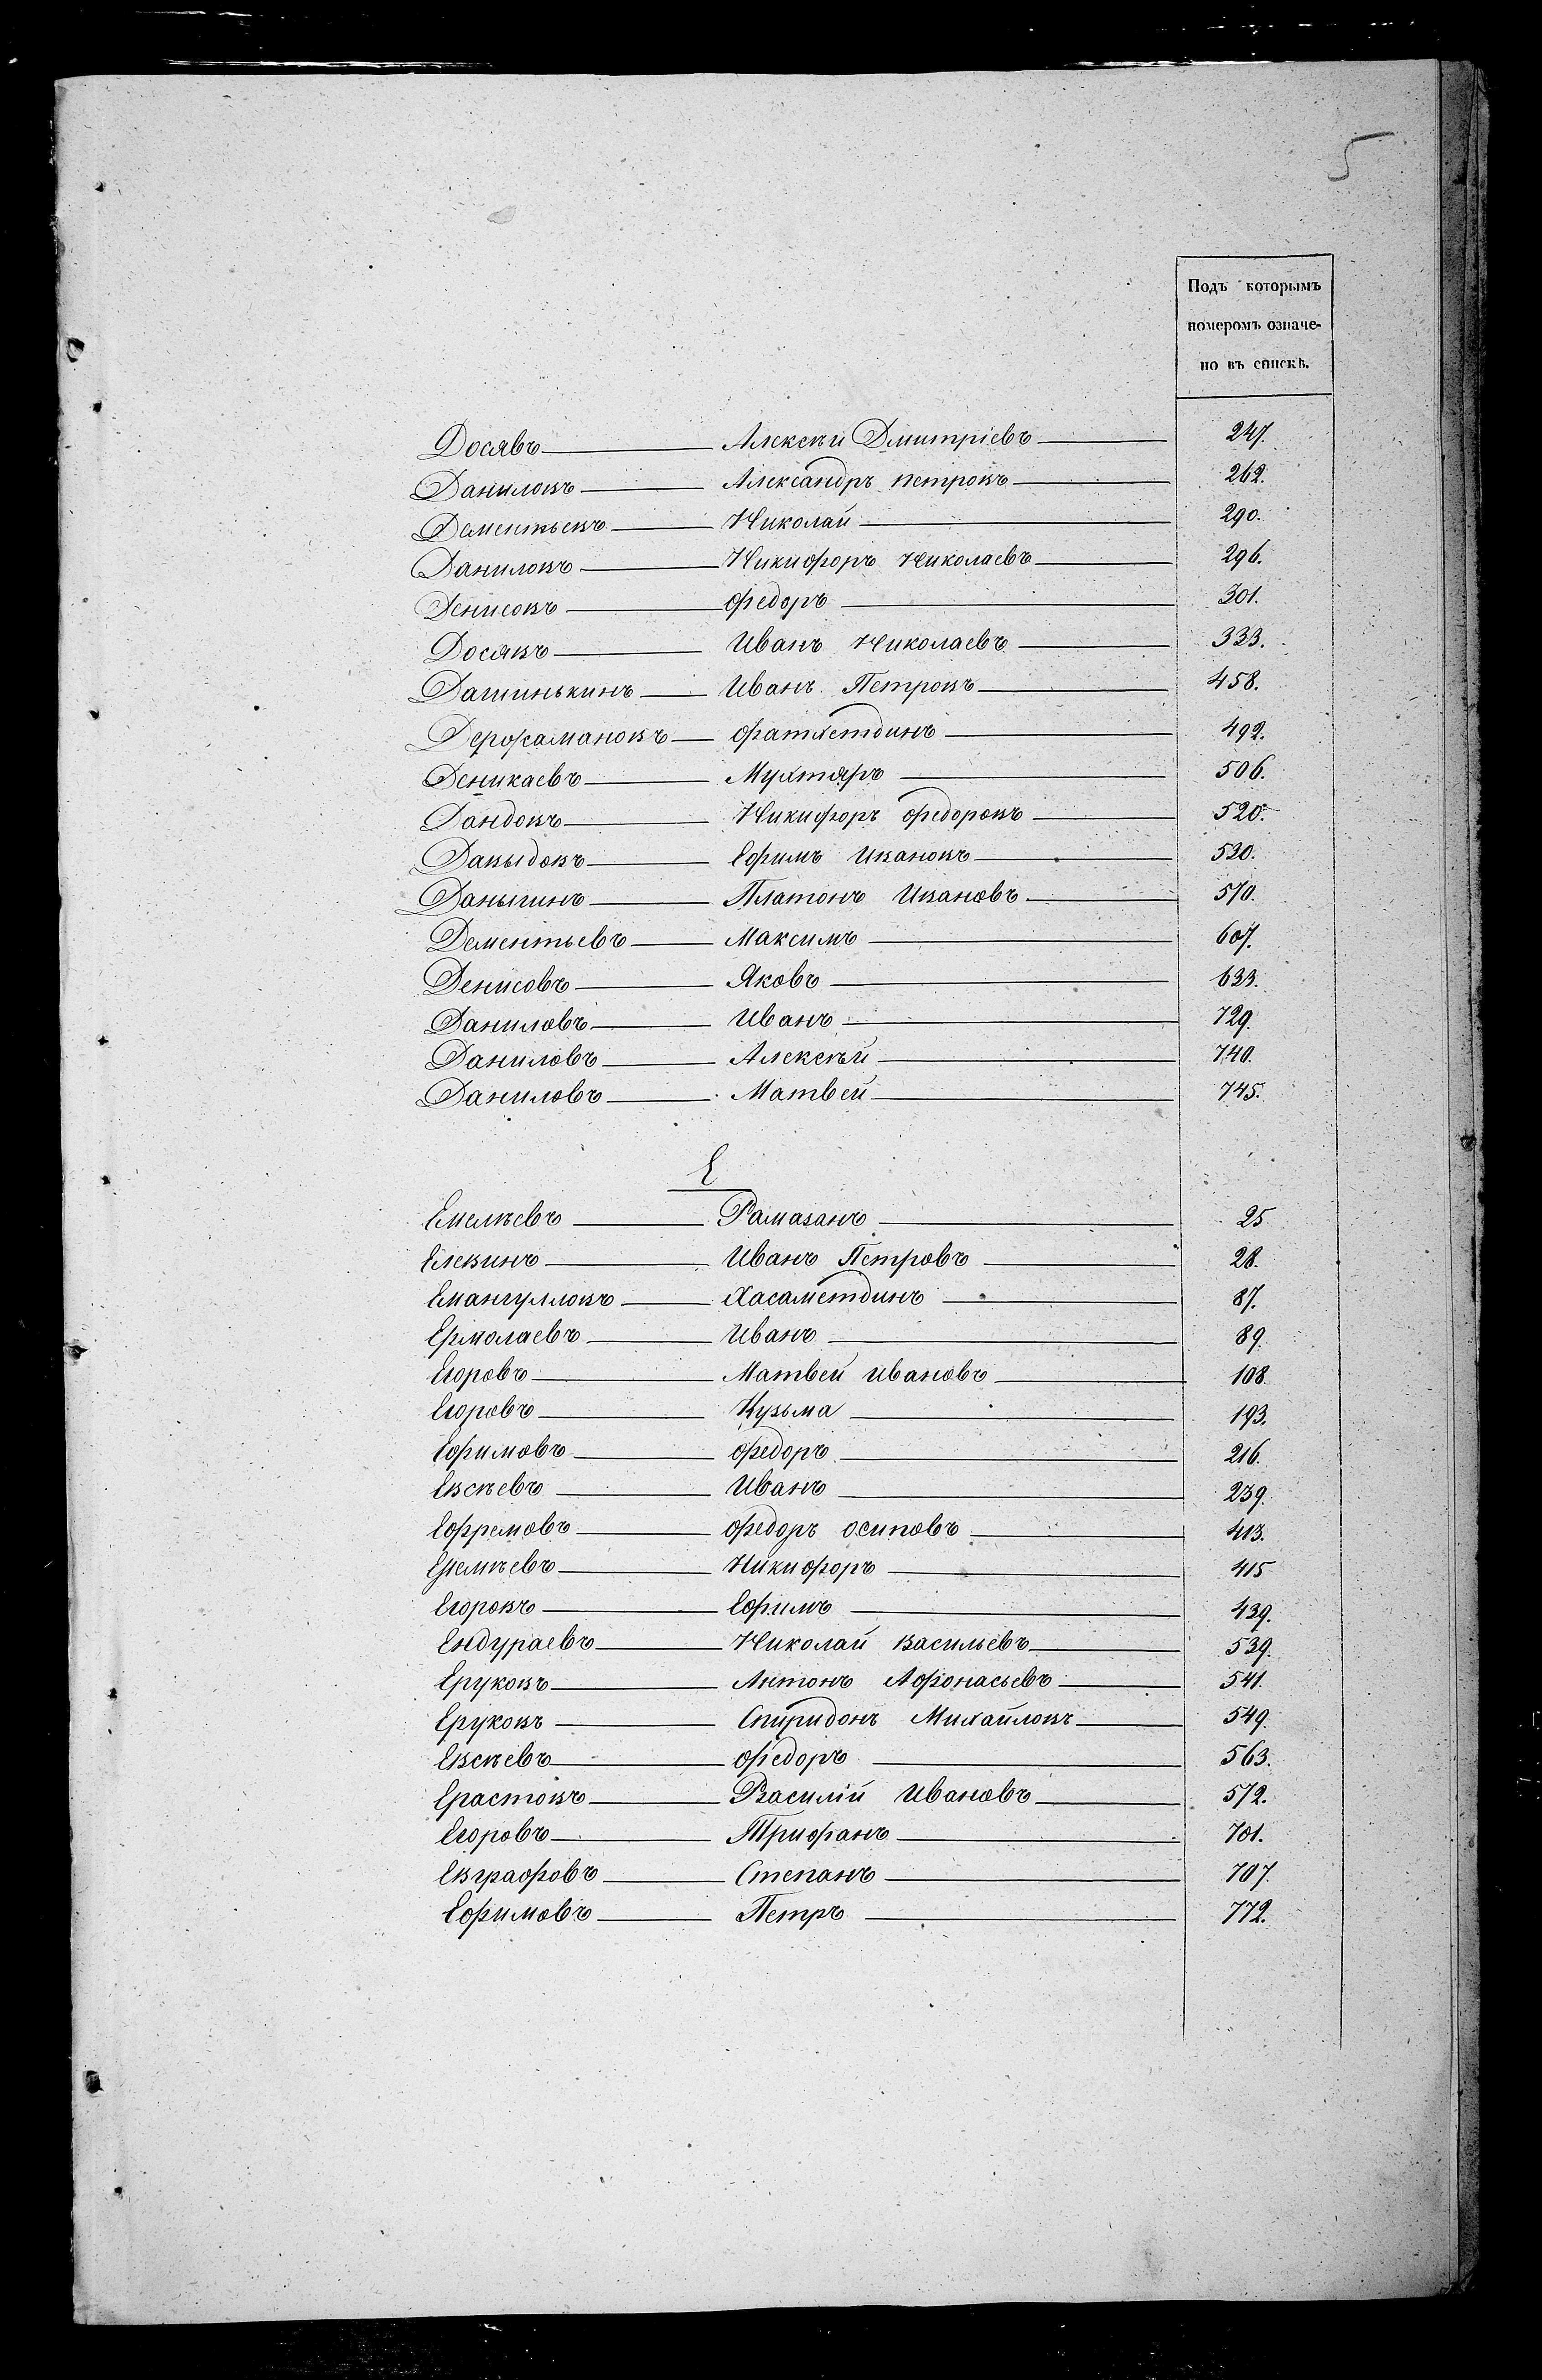 5
Подъ которымъ
номеромъ означе-
но въ спискѣ.
Досявъ Алексѣй Дмитріевъ 247.
Даниловъ Александръ Петровъ 262.
Дементьевъ Николай 290.
Даниловъ Никифоръ Николаевъ 296.
Денисовъ Федоръ 301.
Досявъ Иванъ Николаевъ 333.
Дашинькинъ Иванъ Петровъ 458.
Держамановъ Фатхетдинъ 492.
Деникаевъ Мухтяръ 506.
Дандовъ Никифоръ Федоровъ 520.
Давыдовъ Ефимъ Ивановъ 530.
Даныгинъ Платонъ Ивановъ 570.
Дементьевъ Максимъ 607.
Денисовъ Яковъ 633.
Даниловъ Иванъ 729.
Даниловъ Алексѣй 740.
Даниловъ Матвей 745.
Е
Емелѣевъ Рамазанъ 25
Елевинъ Иванъ Петровъ 28.
Емангулловъ Хасаметдинъ 87.
Ермолаевъ Иванъ 89.
Егоровъ Матвей Ивановъ 108.
Егоровъ Кузьма 193.
Ефимовъ Федоръ 216.
Евсѣевъ Иванъ 239.
Ефремовъ Федоръ Осиповъ 413.
Емелѣевъ Никифоръ 415
Егоровъ Ефимъ 439.
Ендураевъ Николай Васильевъ 539.
Еруковъ Антонъ Афонасьевъ 541.
Еруковъ Спиридонъ Михайловъ 549.
Евсѣевъ Федоръ 563.
Ерастовъ Василій Ивановъ 572.
Егоровъ Трифанъ 701.
Евграфовъ Степанъ 707.
Ефимовъ Петръ 772.